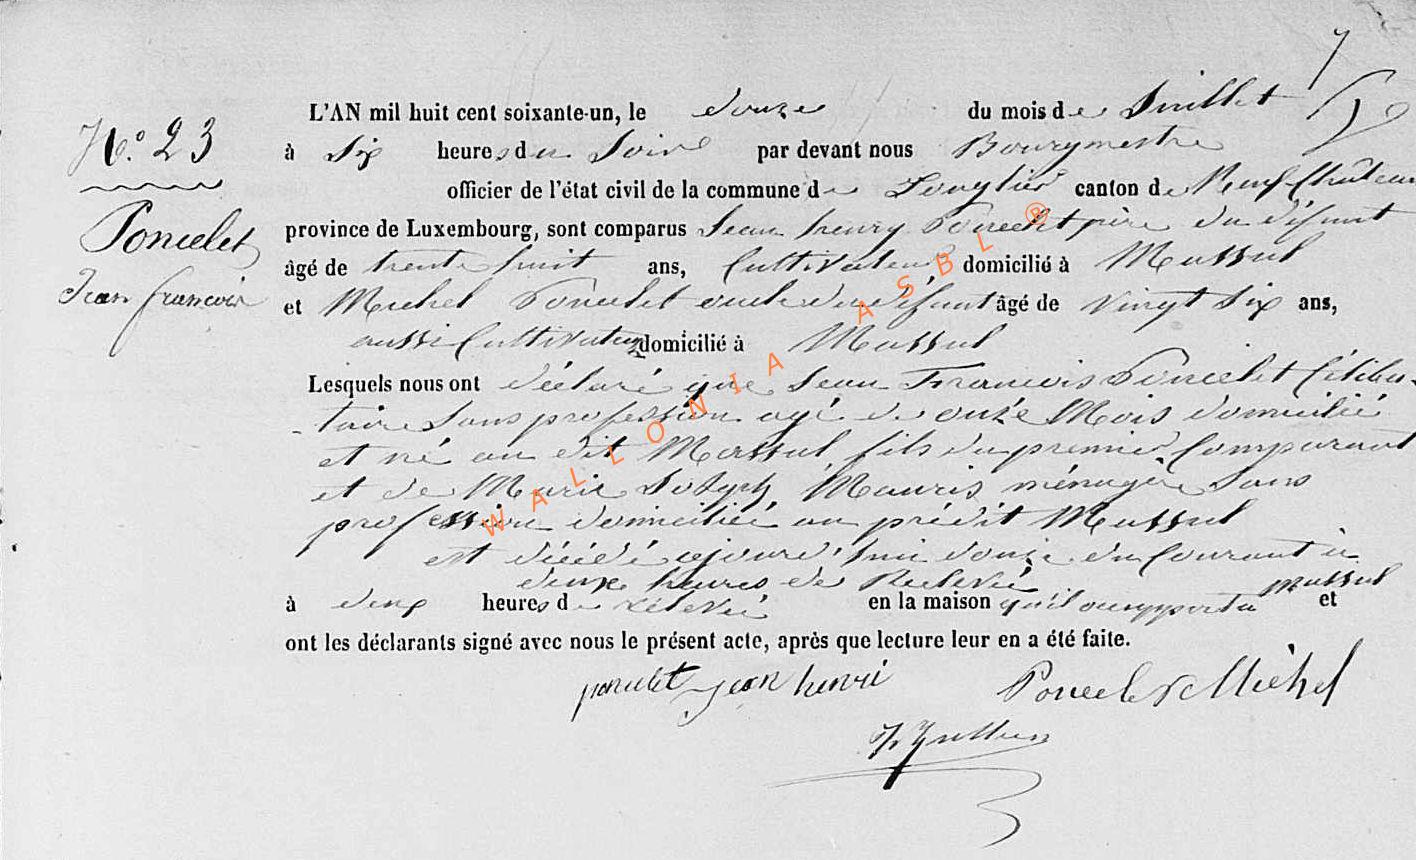 7
L'AN mil huit cent soixante-un, le douze du mois de Juillet
N.° 23
à Six heures du Soir par devant nous Bourgmestre
officier de l'état civil de la commune de Longlier canton de Neufchâteau
Poncelet
province de Luxembourg, sont comparus Jean henry Poncelet père du défunt
âgé de trente huit ans, Cultivateur domicilié à Massul
Jean francois
et Michel Poncelet oncle du défunt âgé de vingt Six ans,
aussi Cultivateur domicilié à Massul
Lesquels nous ont déclaré que Jean Francois Poncelet Céliba-
-taire Sans profession agé de onze Mois domicilié
et né au dit Massul fils du premier Comparant
et de Marie Joseph Mauris ménagère Sans
profession domiciliée au prédit Massul
est décédé ajourd'hui douze du Courant à
deux heures de Relevée
à deux heures de Relevée en la maison qu'il occupe à Massul et
ont les déclarants signé avec nous le présent acte, après que lecture leur en a été faite.
poncelet jean henri Poncelet Michel
WALLONIA ASBL ®